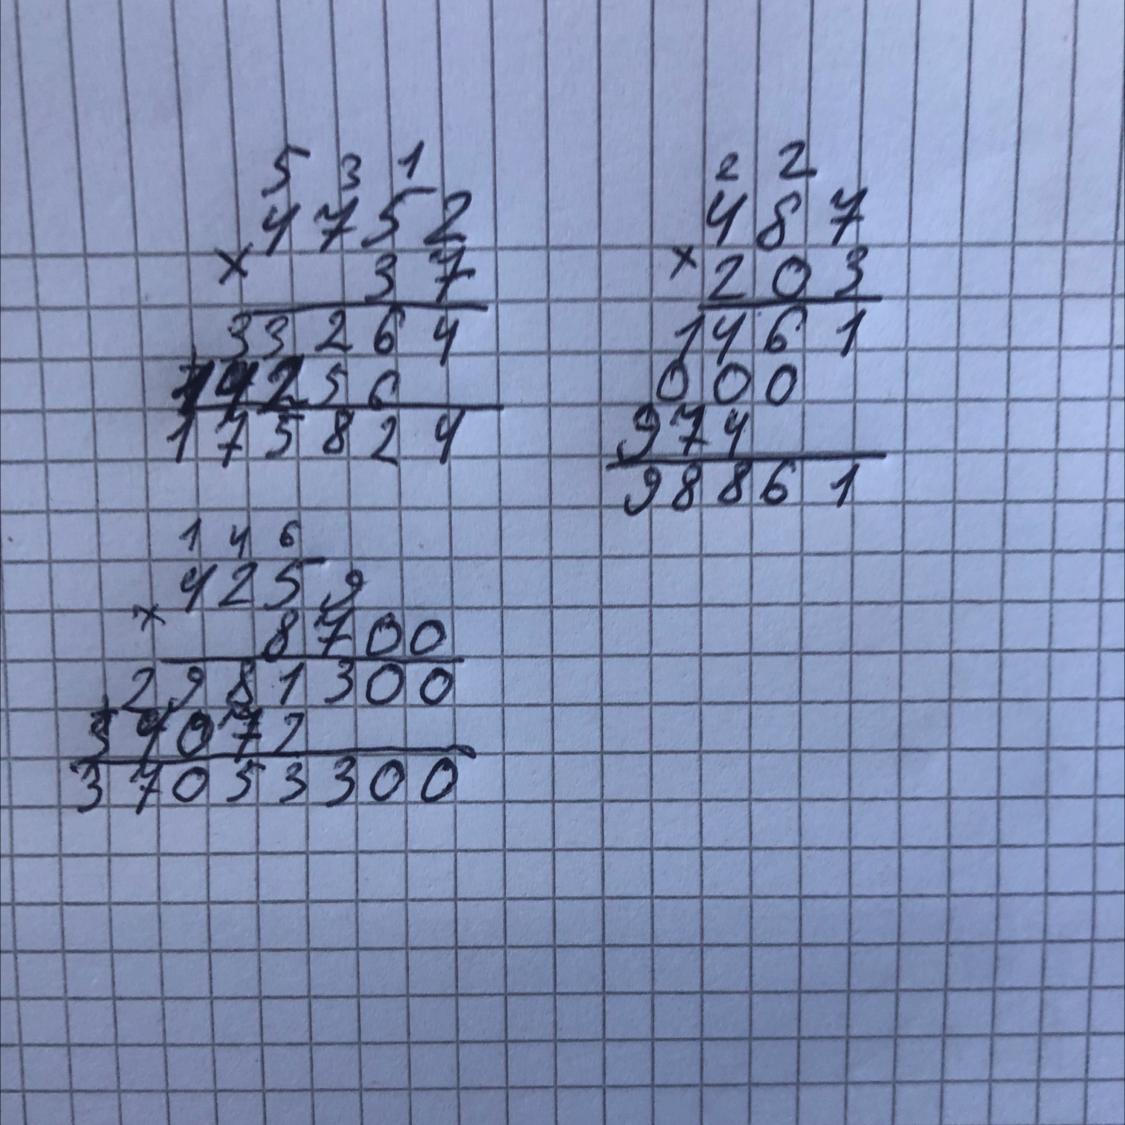 5 3 1
4752
× 37
33264
14256
175824
2 2
487
× 203
1461
000
974
98861
1 4 6
4259
× 8700
2981300
34072
37053300